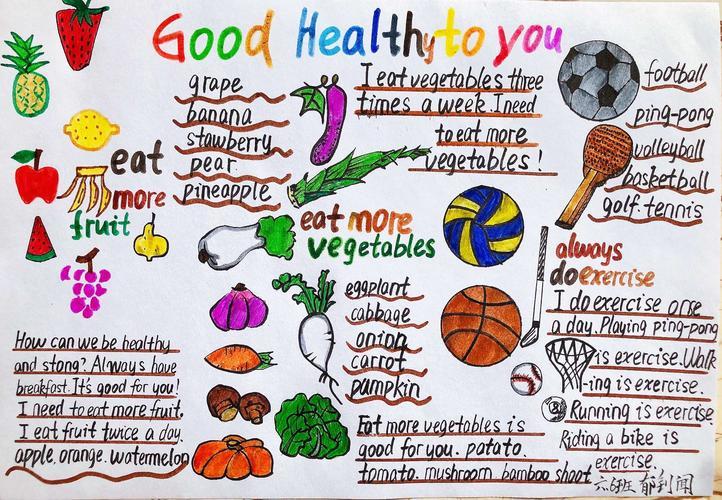 Good Healthy to you
grape
banana
stawberry
pear
pineapple
eat
more
fruit
I eat vegetables three
times a week. I need
to eat more
vegetables!
football
ping-pong
volleyball
basketball
golf. tennis
eat more
vegetables
eggplant
cabbage
onion
carrot
pumpkin
always
do exercise
I do exercise orse
a day. Playing ping-pong
is exercise. Walk
-ing is exercise.
Running is exercise
Riding a bike is
exercise.
How can we be healthy
and stong? Always have
breakfast. It's good for you!
I need to eat more fruit.
I eat fruit twice a day.
apple. orange. watermelon
Eat more vegetables is
good for you. patato.
tomato. mushroom. bamboo shoot